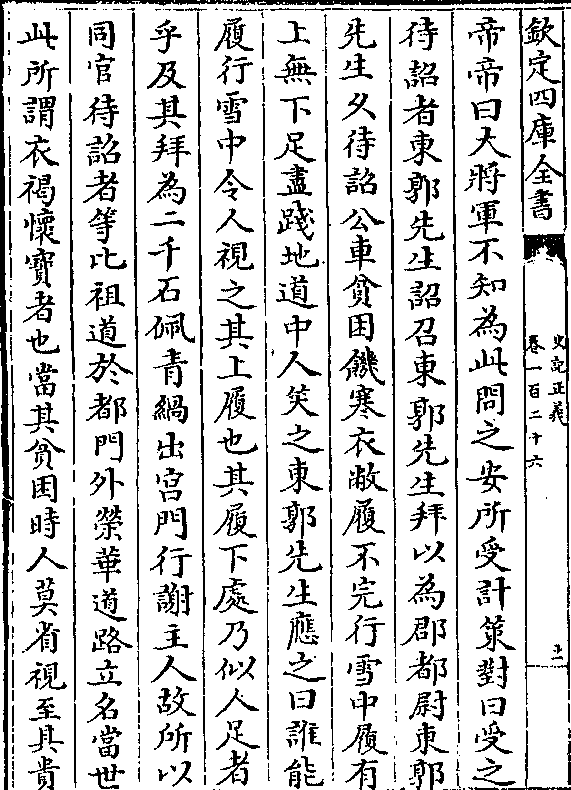 欽定四庫全書
史記正義
卷一百二十六
十一
帝帝曰大將軍不知為此問之安所受計策對曰受之
待詔者東郭先生詔召東郭先生拜以為郡都尉東郭
先生久待詔公車貧困饑寒衣敝履不完行雪中履有
上無下足盡踐地道中人笑之東郭先生應之曰誰能
履行雪中令人視之其上履也其履下處乃似人足者
乎及其拜為二千石佩青緺出宫門行謝主人故所以
同官待詔者等比祖道於都門外榮華道路立名當世
此所謂衣褐懷寳者也當其貧困時人莫省視至其貴